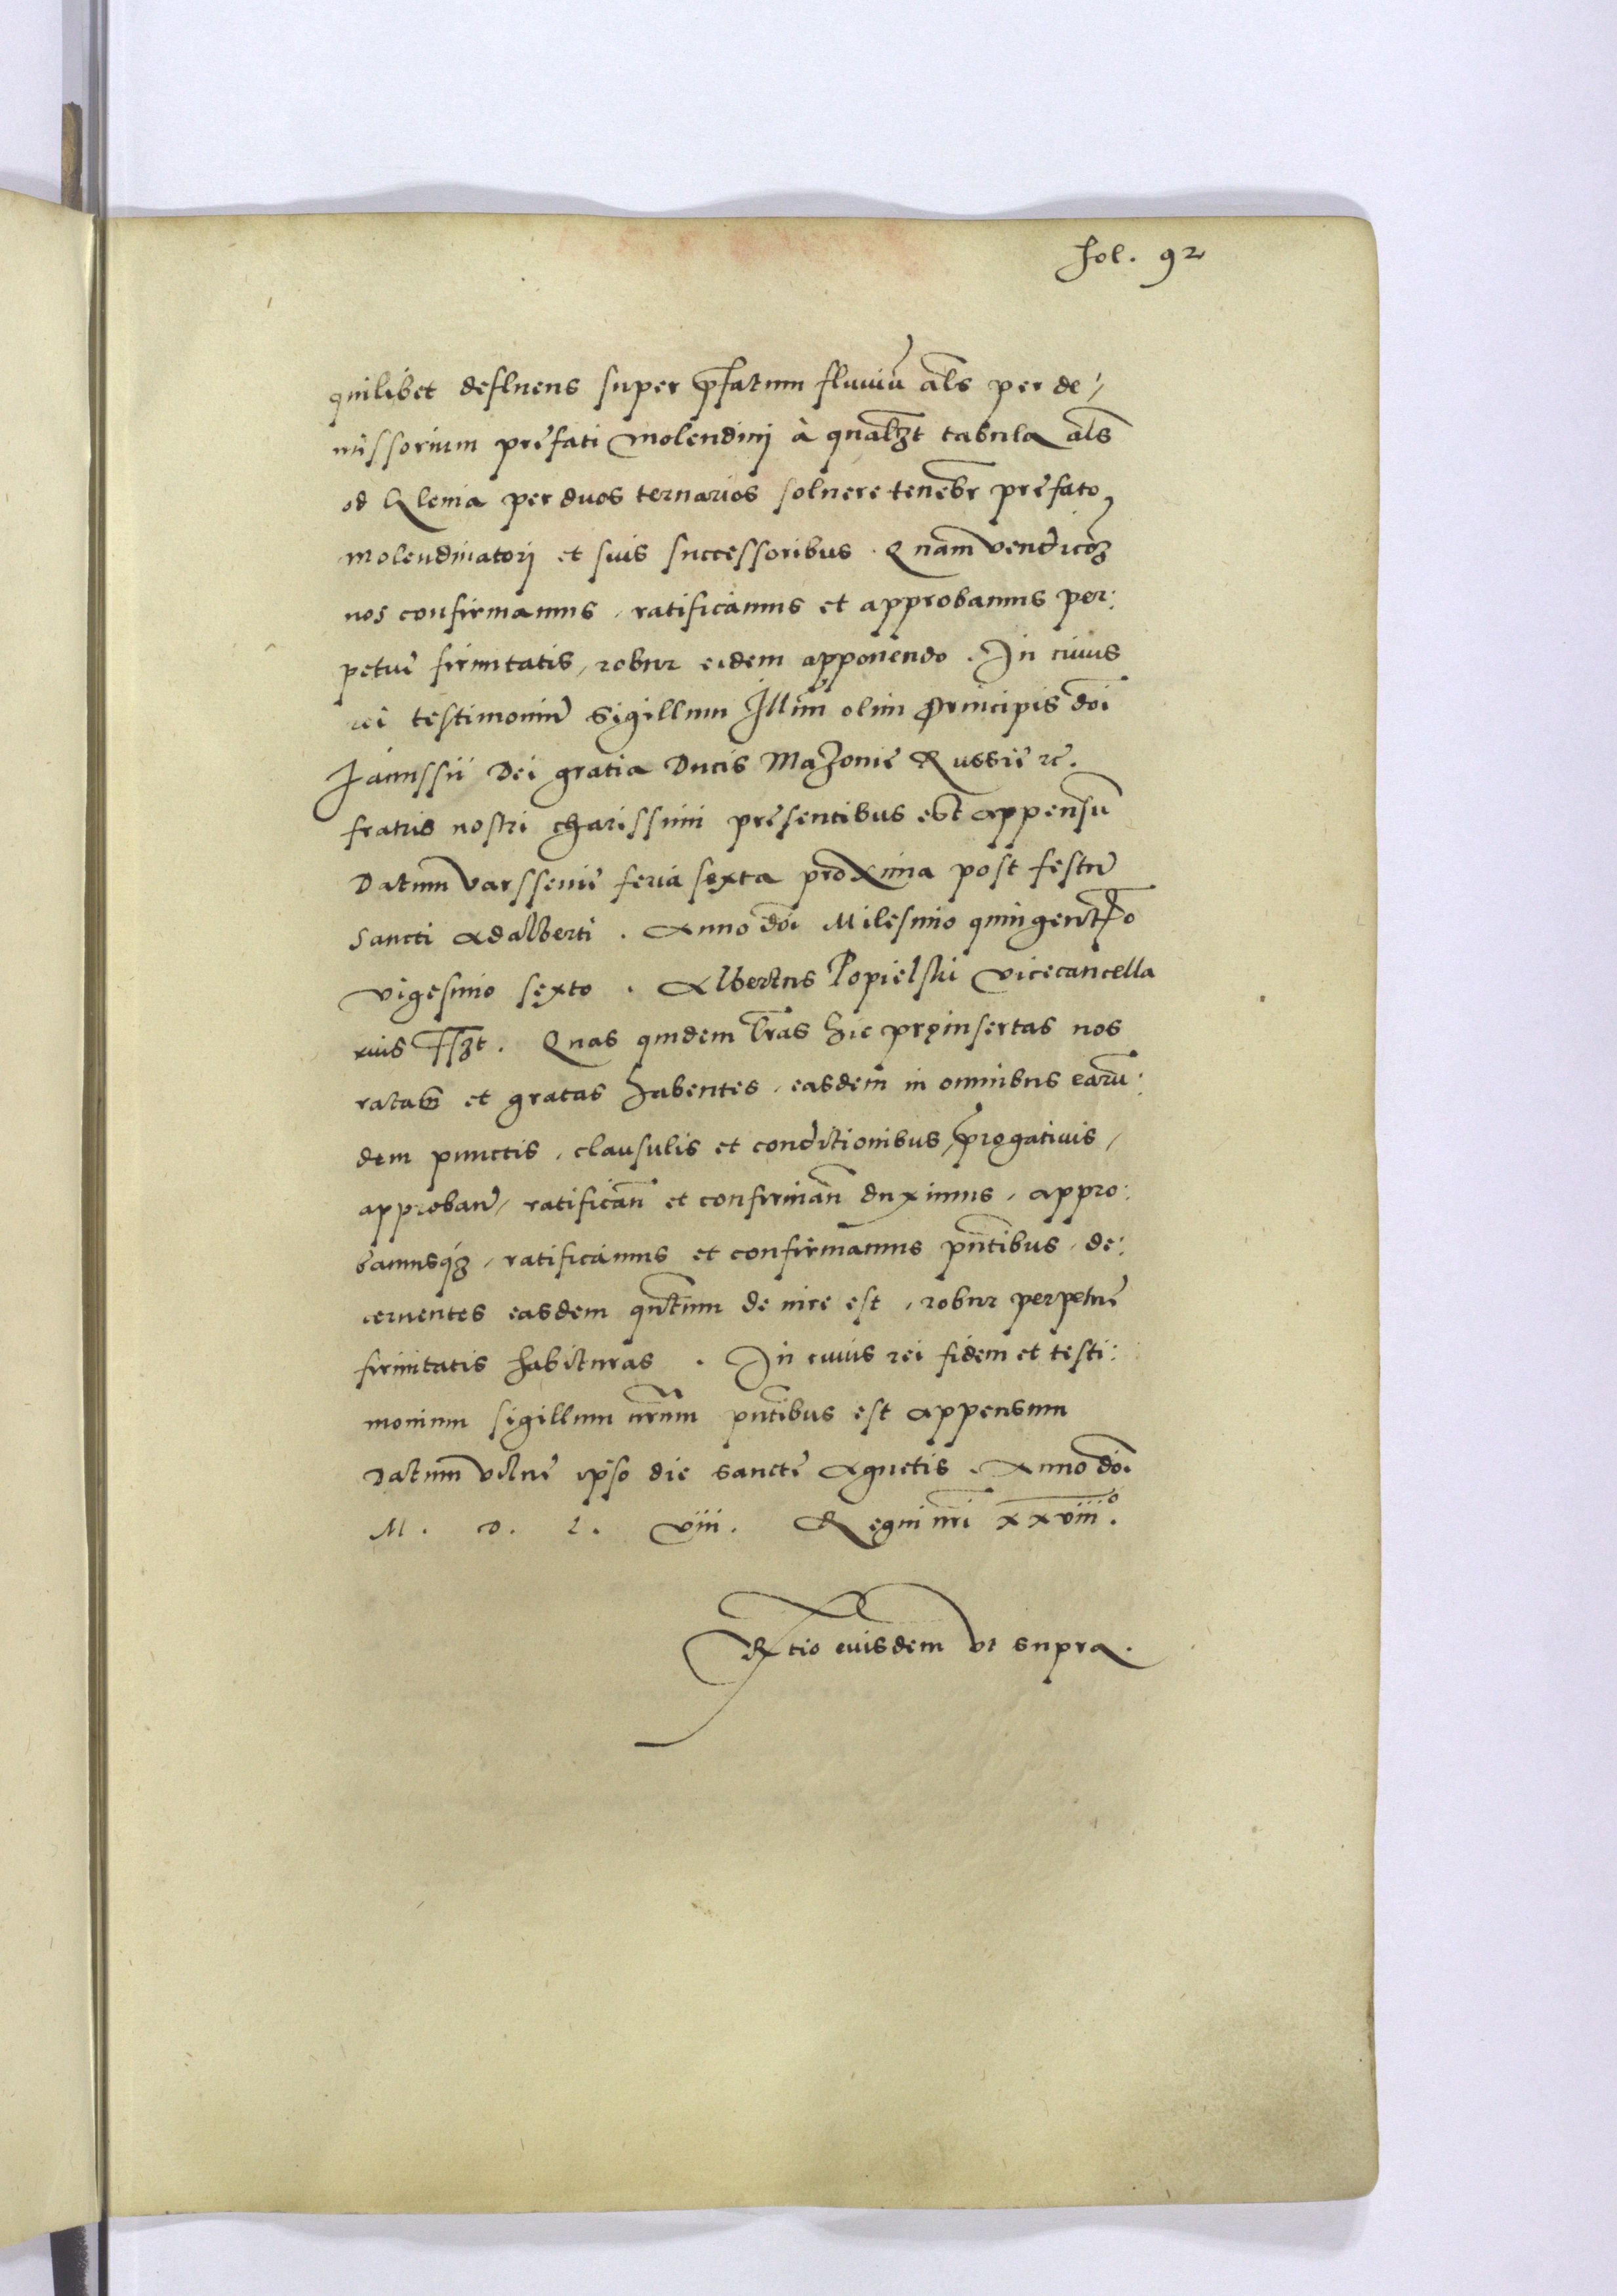 fol. 92
quilibet defluens super p̄fatum fluuiū al̄s per de:
missorium prefati molendinj à qual̄zt tabula al̄s
od Klenia per duos ternarios soluere tenebr̄ prefato
molendinatorj et suis successoribus. Quam venditōz
nos confirmamus, ratificamus et approbamus per:
petue firmitatis, robur eidem apponendo. In cuius
rei testimoniū sigillum Ill̄mi olim Principis dōi
Janussii Dei gratia Ducis Mazouie Russie rc̄.
fratris nostri charissimi presentibus est appensū
Datum varssouie feria sexta proxima post festū
sancti Adalberti. Anno dōi Milesimo quingent̄o
vigesimo sexto. Albertus Popielski vicecancella
rius sszt. Quas quidem l̄ras hic pręinsertas nos
ratas et gratas habentes, easdem in omnibus earū:
dem punctis, clausulis et conditionibus, p̄rogatiuis,
approban̄, ratifican̄ et confirman̄ duximus, appro:
bamusqz, ratificamus et confirmamus pn̄tibus, de:
cernentes easdem qn̄tum de iure est, robur perpetue
firmitatis habituras. In cuius rei fidem et testi:
monium sigillum nr̄um pn̄tibus est appensum
Datum vilne ip̄so die sancte Agnetis. Anno dōi
M. D. L. viii. Regni nr̄i xxviii°.
Rtio eiusdem vt supra.